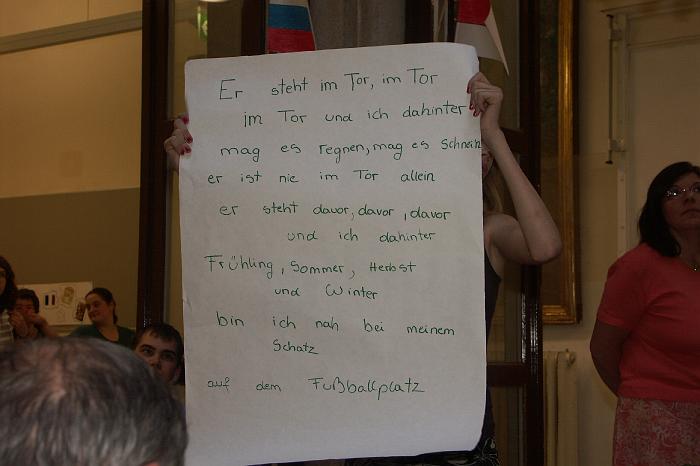 Er steht im Tor, im Tor
im Tor und ich dahinter
mag es regnen, mag es schnein
er ist nie im Tor allein
er steht davor, davor, davor
und ich dahinter
Frühling, Sommer, Herbst
und Winter
bin ich nah bei meinem
Schatz
auf dem Fußballplatz